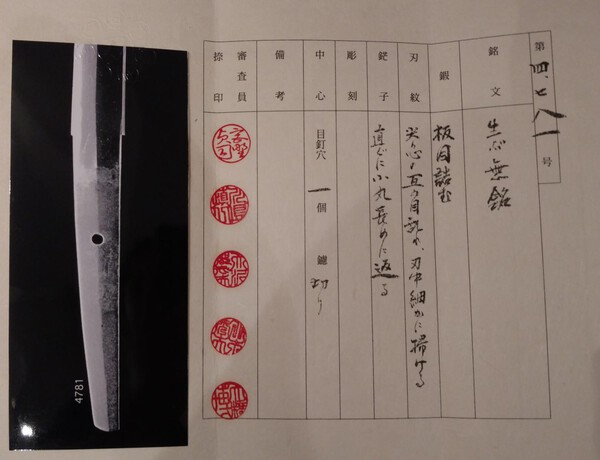 第四、七八一号
銘文 生ぶ無銘
鍛 板目詰む
刃紋 尖り心の互の目乱れ、刃中細かに掃ける
鋩子 直ぐに小丸長めに返る
彫刻
中心 目釘穴 一個 鑢 切り
備考
審査員捺印
4781